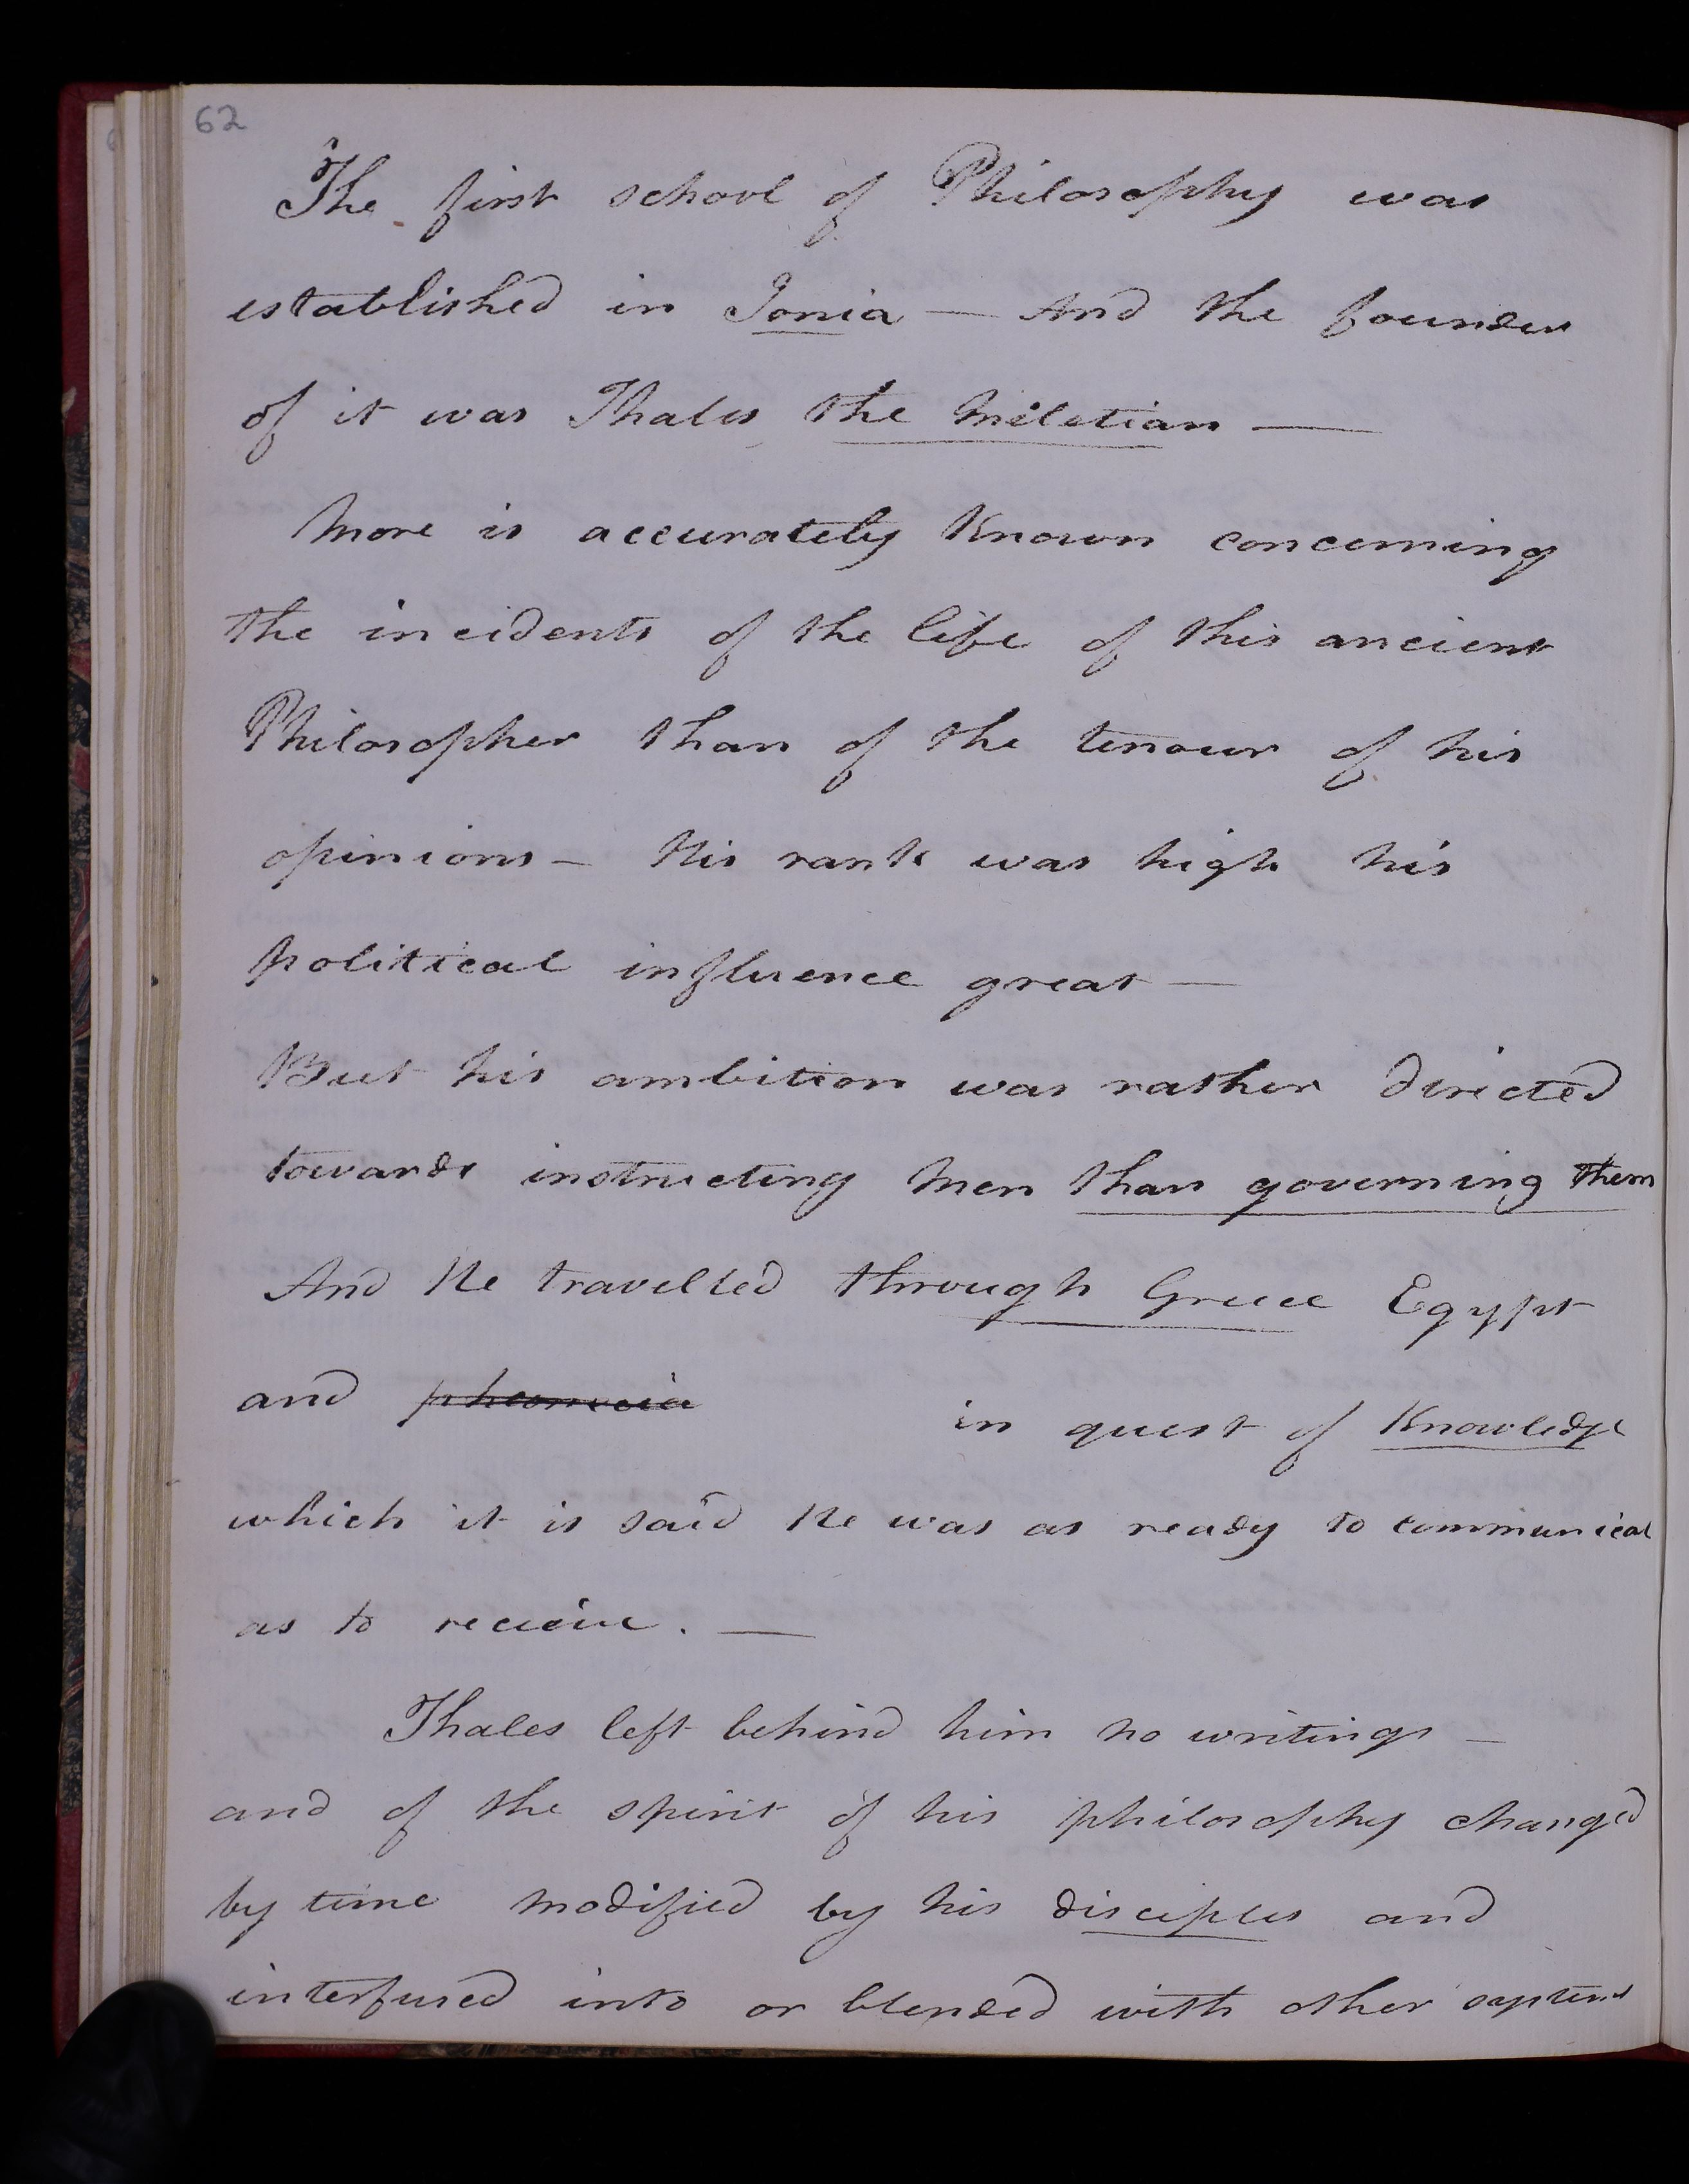 62
The first school of Philosophy was
established in Ionia — And the founder
of it was Thales the Miletian —
More is accurately Known concerning
the incidents of the life of this ancient
Philosopher than of the tenour of his
opinions — His rank was high his
political influence great —
But his ambition was rather directed
towards instructing Men than governing them
And He travelled through Greece Egypt
and in quest of Knowledge
which it is said He was as ready to communicat
as to receive. —
Thales left behind him no writings —
and of the spirit of his philosophy changed
by time modified by his disciples and
interfused into or blended with other systems